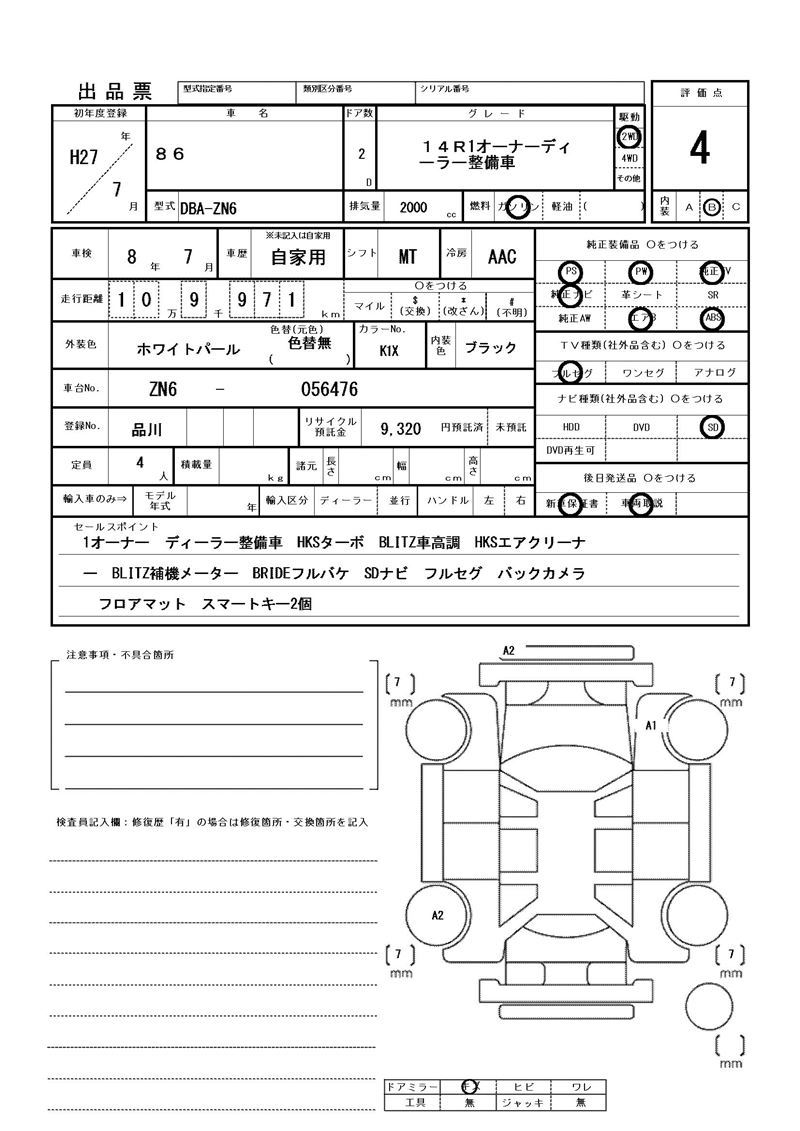 出品票
型式指定番号 類別区分番号 シリアル番号
評価点
初年度登録 車 名 ドア数 グレード 駆動
H27 年 7 月
86
2 D
14R1オーナーディ
ーラー整備車
2WD
4WD
その他
4
型式 DBA-ZN6 排気量 2000 cc 燃料 ガソリン 軽油 ( )
内装 A B C
車検 8 年 7 月 車歴 ※未記入は自家用 自家用 シフト MT 冷房 AAC
純正装備品 Oをつける
PS PW 純正TV
純正ナビ 革シート SR
純正AW エアB ABS
走行距離 10 万 9 千 971 km
Oをつける
マイル $(交換) *(改ざん) #(不明)
外装色 ホワイトパール 色替(元色) 色替無 ( ) カラーNo. K1X 内装色 ブラック
TV種類(社外品含む) Oをつける
フルセグ ワンセグ アナログ
車台No. ZN6 - 056476
ナビ種類(社外品含む) Oをつける
HDD DVD SD
DVD再生可
登録No. 品川 リサイクル預託金 9,320 円預託済 未預託
定員 4 人 積載量 kg 諸元 長さ cm 幅 cm 高さ cm
後日発送品 Oをつける
新車保証書 車両取説
輸入車のみ⇒ モデル年式 年 輸入区分 ディーラー 並行 ハンドル 左 右
セールスポイント
1オーナー ディーラー整備車 HKSターボ BLITZ車高調 HKSエアクリーナ
ー BLITZ補機メーター BRIDEフルバケ SDナビ フルセグ バックカメラ
フロアマット スマートキー2個
注意事項・不具合箇所
A2
[7] mm
[7] mm
A1
検査員記入欄：修復歴「有」の場合は修復箇所・交換箇所を記入
A2
[7] mm
[7] mm
[ ] mm
ドアミラー キズ ヒビ ワレ
工具 無 ジャッキ 無